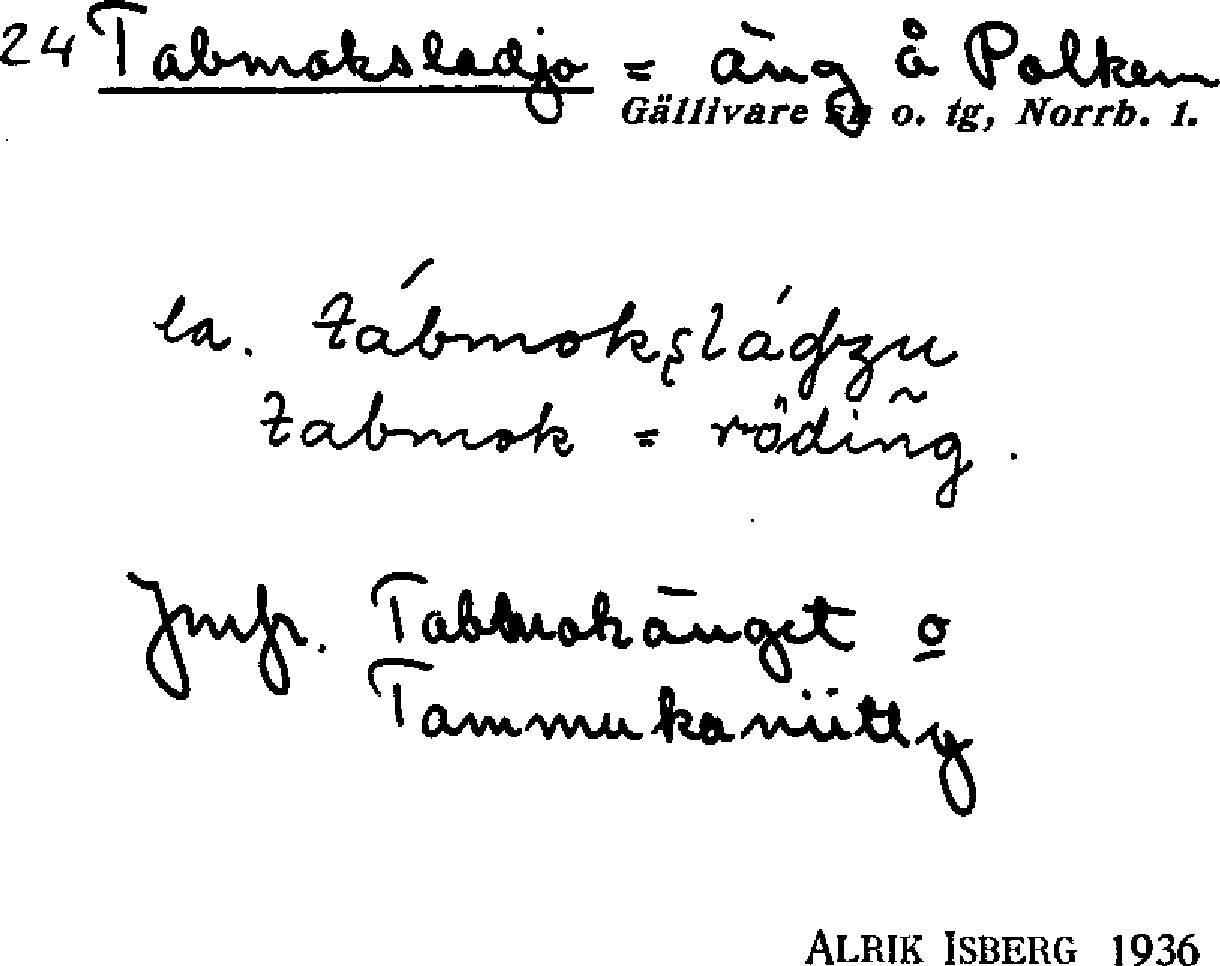 24 Tabmoksladjo = äng å Polkem
Gällivare sn o. tg, Norrb. l.
la. tábmoksládzu
tabmok = röding .
Jmfr. Tabmokänget o
Tammukaniitty
ALRIK ISBERG 1936